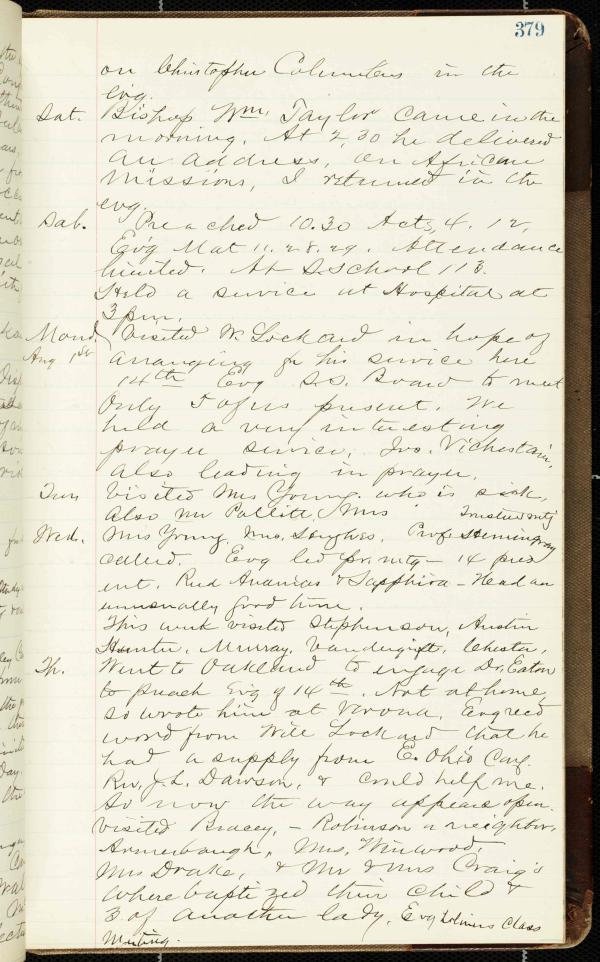 379
on Christopher Columbus in the
Evg.
Sat. Bishop Wm. Taylor came in the
morning. At 2,30 he delivered
an address, on African
Missions, I returned in the
evg.
Sab. Preached 10.30 Acts, 4. 12,
Evg Mat 11. 28.29. Attendance
limited. At S.School 113.
Held a service at Hospital at
3 p.m.
Mond. Visited W. Lockard in hope of
Aug 1st arranging for his service here
14th Evg S.S. Board to meet
Only 5 of us present. We
held a very interesting
prayer service, Jno.
also leading in prayer.
Tues Visited Mrs Young. who is sick,
Also Mr Pollitt, Mrs Trustee mtg
Wed. Mrs Young, Mrs. Prof. Hemingray
called. Evg led pr. mtg - 14 pres
ent. Read Ananias & Sapphira - Had an
unusually good time.
This week visited Stephenson, Austin
Hunter, Murray, Vandergift, Chester,
Th. Went to Oakland to engage Dr. Eaton
to preach Evg of 14th. Not at home,
so wrote him at Verona. Evg rec'd
word from Will Lockard that he
had a supply from E. Ohio Conf.
Rev. J. L. Dawson, & could help me.
So now the way appears open.
Visited Bracey, - Robinson a neighbor,
Armebaugh, Mrs. Winwood,
Mrs Drake, & Mr & Mrs Craig's
where baptized their child &
3 of another lady, Evg Class
Meeting.